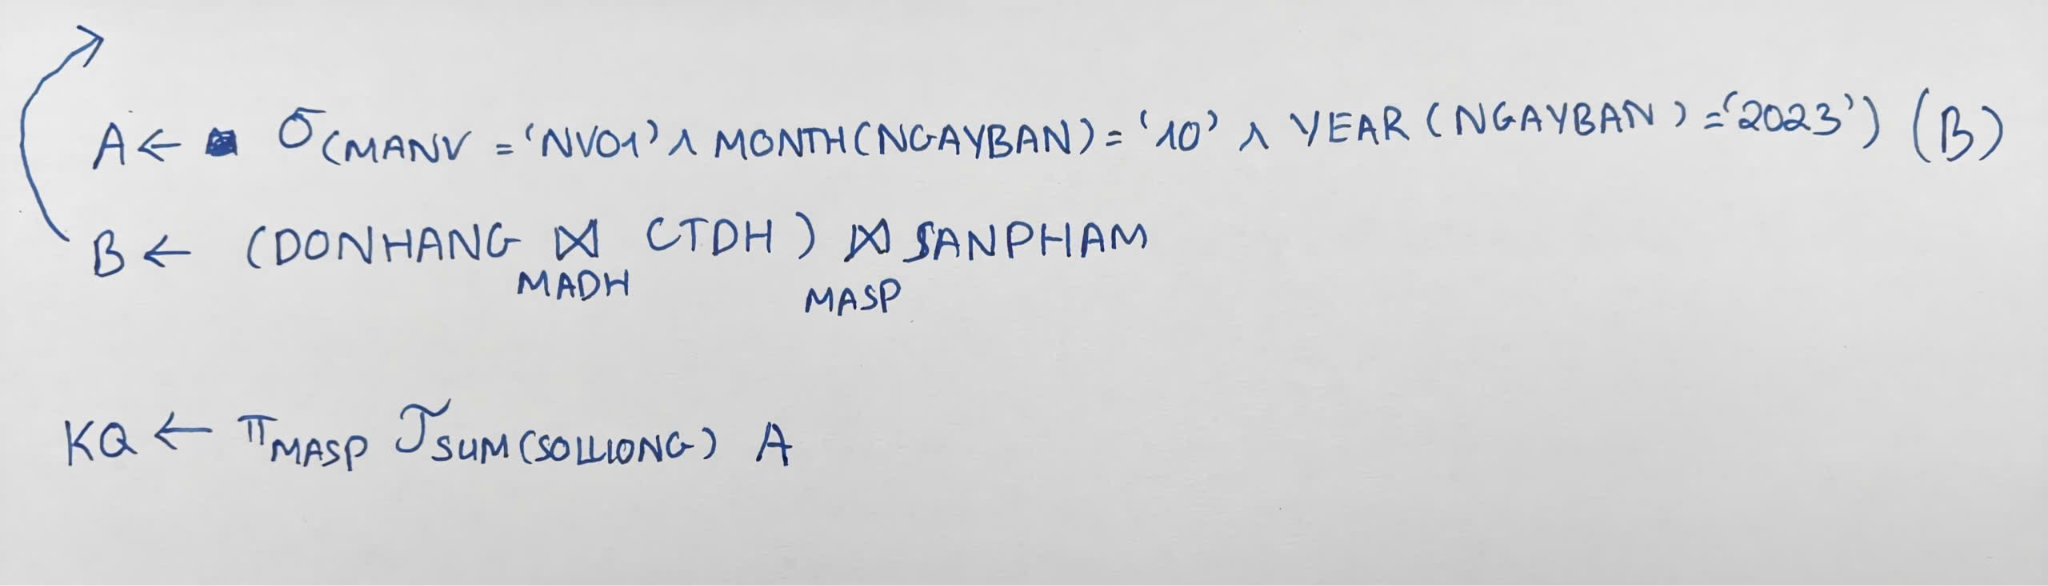 A ← σ (MANV = 'NV01' ∧ MONTH(NGAYBAN) = '10' ∧ YEAR (NGAYBAN) = '2023') (B)
B ← (DONHANG ⋈ CTDH) ⋈ SANPHAM
MADH MASP
KQ ← π MASP ℑ SUM(SOLUONG) A